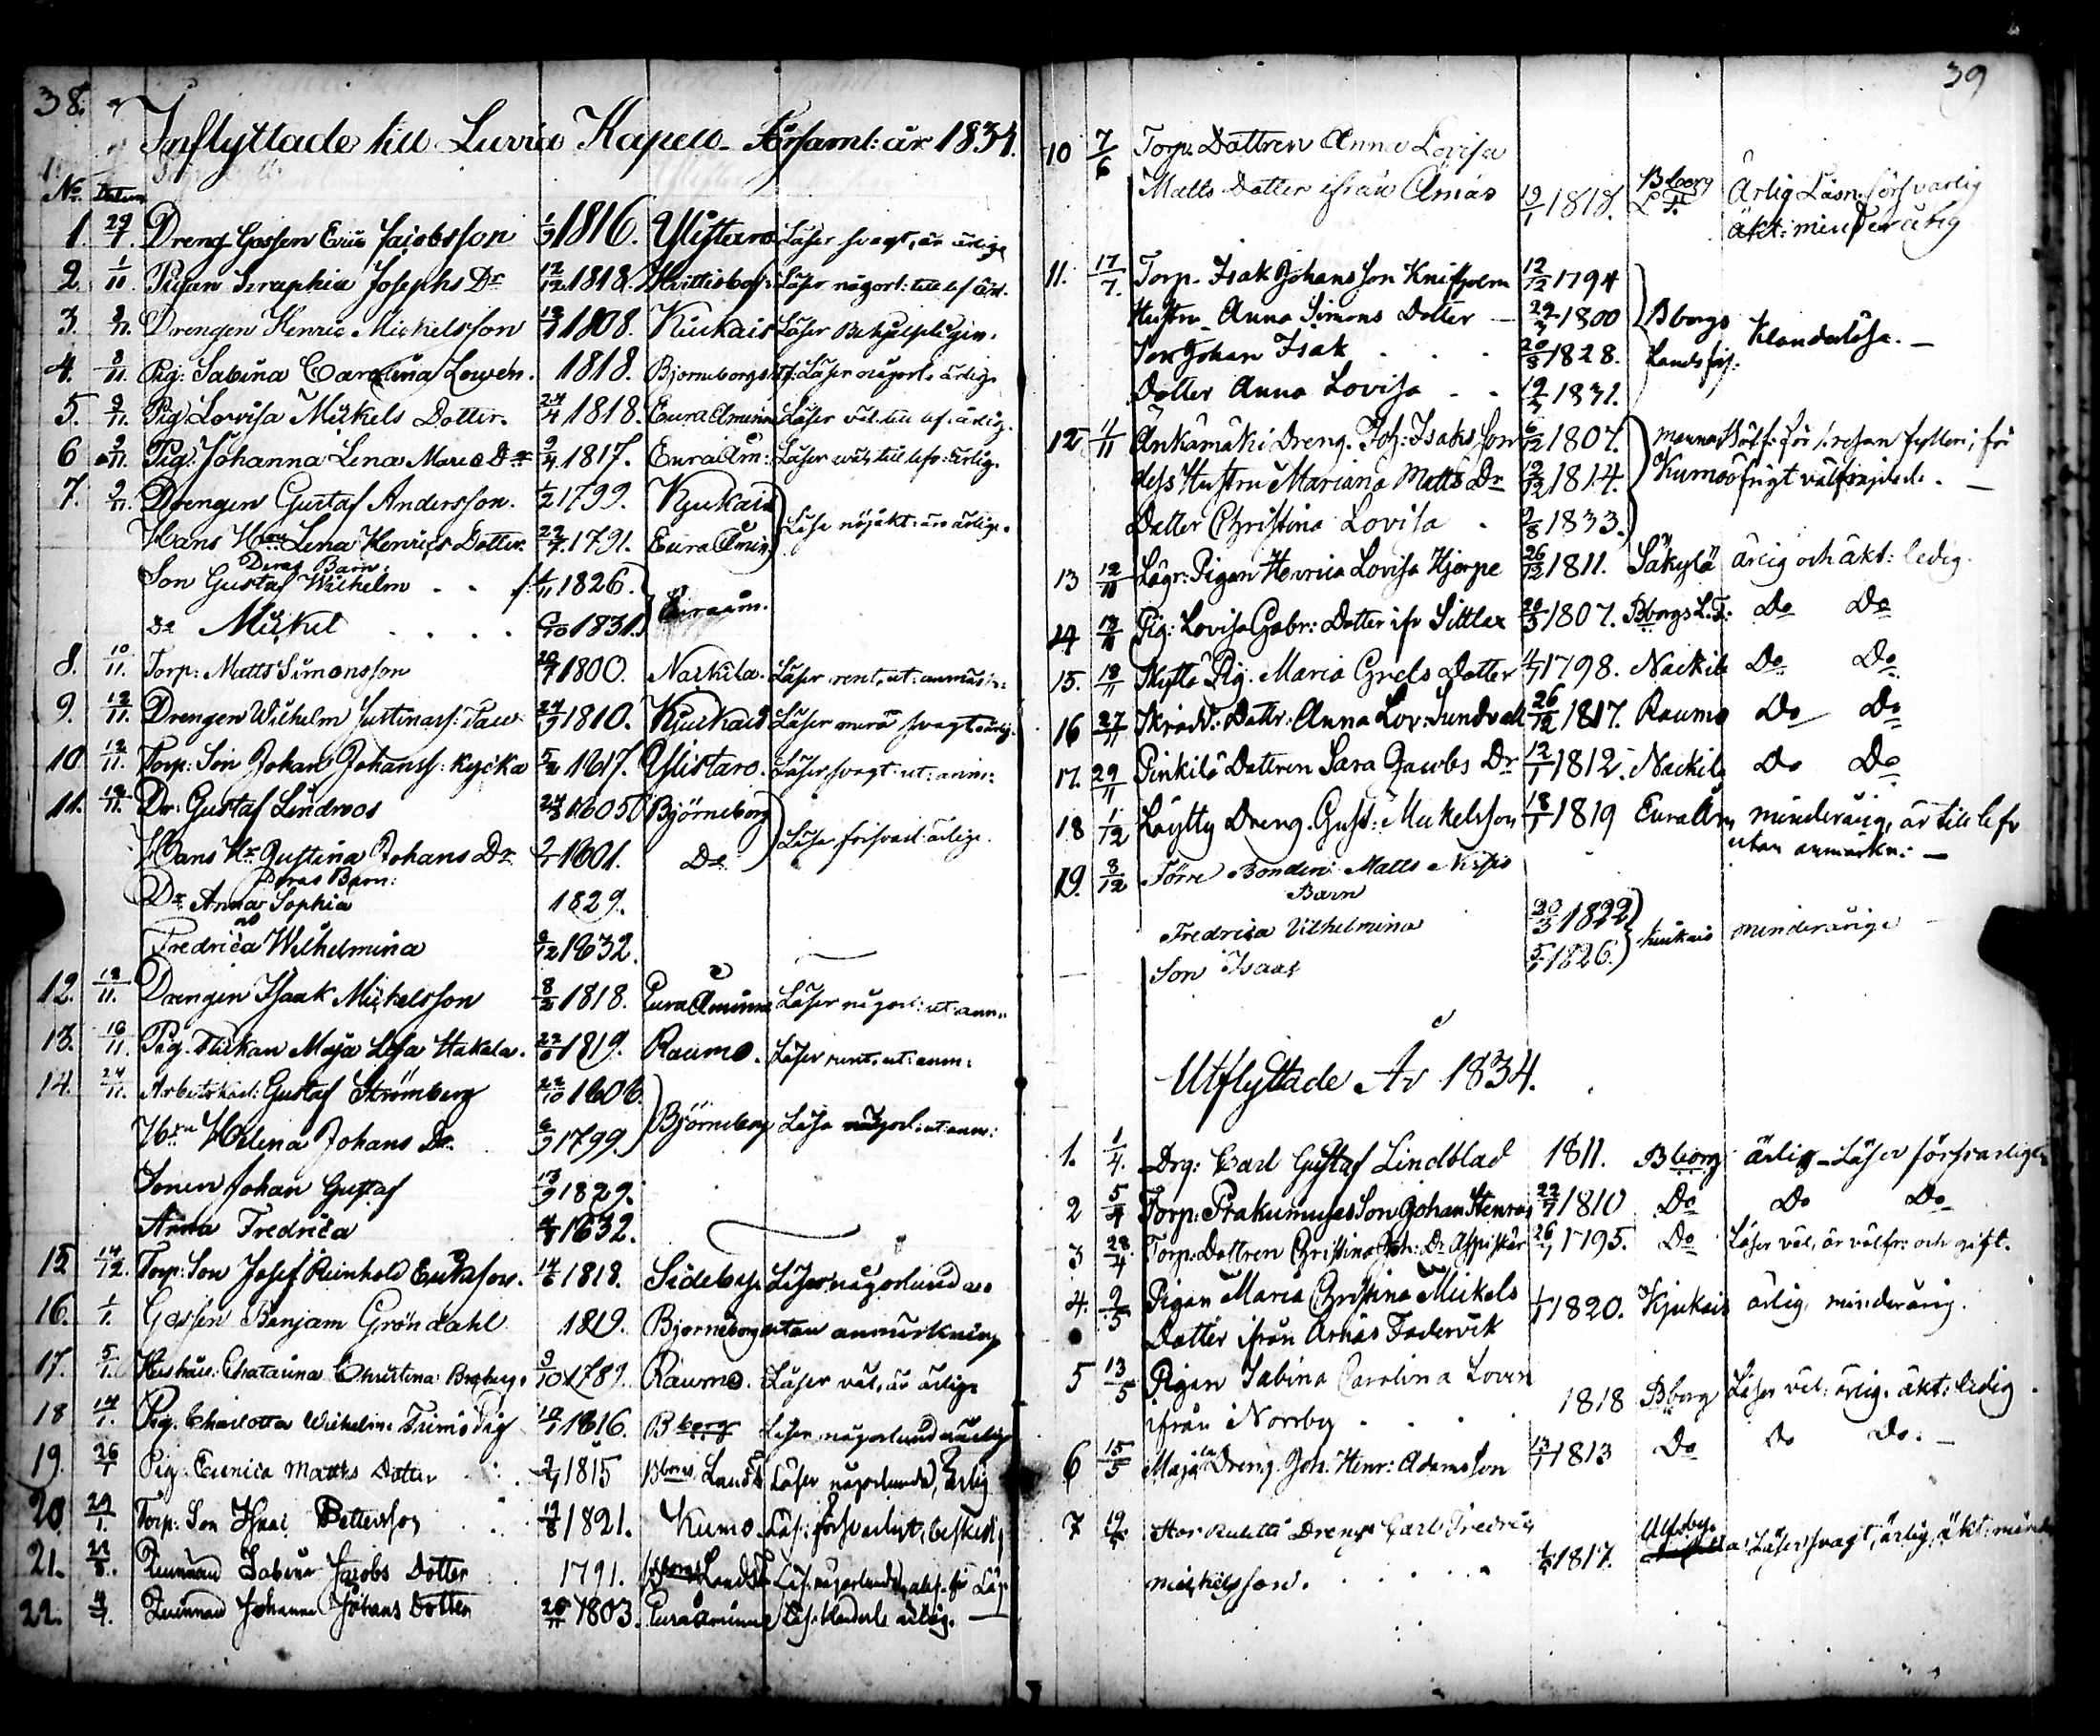 38.
Inflyttade till Luvia Kapell Församl: år 1834.
No Datum
1. 29/1. Dreng Gossen Eric Jacobsson 1/9 1816. Ylistaro Läser svagt, är ärlig
2. 1/10 Pigan Seraphia Josephs Dr 12/12 1818. Hvittisbof: Läser någorl: till lef ärl.
3. 8/11. Drengen Henric Mickelsson 1808. Kiukais Läser
4. 8/11. Pig: Sabina Carolina Lowen. 1818. Björneborgs Läser någorl. ärlig.
5. 9/11. Pig Lovisa Mickels Dotter. 24/4 1818. Eura Åminne Läser väl till lef. ärlig.
6 9/11. Pig. Johanna Lena Marc Dr 1817. Eura Åm: Läser väl till lefv: ärlig.
7. 9/11. Drengen Gustaf Andersson. 1/2 1799. Kjukais
Hans Hru Lena Henrics Dotter. 22/7 1791. Eura Åmin Läse nöjakt: äro ärlige.
Deras Barn:
Son Gustaf Wilhelm . . f: 4/11 1826. Euraåm.
Do Mickel . . . . 1831.
8. 10/11. Torp: Matts Simonsson 1800. Nackila. Läser rent, ut: anmärk:
9. 12/11. Drengen Wilhelm Justinass: 24/9 1810. Kjukais Läser svagt ärlig.
10 12/11. Torp: Son Johan Johanss: Kycka 1817. Ylistaro. Läser svagt: ut: anm:
11. 12/11. Dr: Gustaf Lindroos 24/3 1805 Björneborg
Hans Hr Gustina Johans Dr 1801. Do Läse försvarl: ärlige.
Deras Barn:
Dr Anna Sophia 1829.
Do
Fredrica Wilhelmina 6/12 1832.
12. 12/11. Drengen Isaak Mickelsson 8/2 1818. Eura Åminne Läser någorl: ut: anm:
13. 16/11. Pig. Flickan Maja Lesa Hakala. 1819. Raumo. Läser rent. ut: anm:
14. 24/11. Arbetskarl: Gustaf Strömberg 22/10 1806.
Hru Helena Johans Dr. 6/9 1799. Björneborg Läse någorl: ut: anm:
Sonen Johan Gustaf 13/9 1829.
Anna Fredrica 1832.
15 14/12. Torp: Son Josef Reinhold Gustafson. 14/6 1818. Sidebyn. Läser någorlunda.
16. 1/1. Gossen Benjam Gröndahl 1819. Björneborg utan anmärkning
17. 5/1. Hushåll: Chatarina Christina Broberg. 9/10 1789. Raumo. Läser väl, är ärlig.
18 14/1. Pig. Charlotta Wilhelm: 1816. B borg Läser någorlunda ärlig
19. 26/1 Pig. Eunica Matts Dotter 1815 Bborgs Lands Läser någorlunda, Ärlig
20. 29/1. Torp: Son Isaac Pettersson 19/8 1821. Kumo. Läs: försvarligt, beskedl,
21. Quinnan Sabina Jacobs Dotter 1791. Bborgs Lands Läs. någorlunda,
22. Quinnan Johanna Johans Dotter 1803. Eura Åminne Läs. ärlig.
39
10 7/6 Torp: Dottren Anna Lovisa
Matts Dotter ifrån Ämäs 19/1 1818. Bborg L. F. Ärlig Läsn: försvarlig
äkt: minderårig
11. 17/7. Torp. Isak Johansson Knifholm 12/12 1794
Hustru Anna Simons Dotter 1800 Bborgs
Son Johan Isak . . . 20/8 1828. Lands förs: Klanderlösa.
Dotter Anna Lovisa . . 1831.
12 4/11 Änkämäki Dreng. Joh: Isaksson 6/12 1807.
dess Hustru Mariana Matts Dr 12/12 1814. Kumo öfrigt välfrejdade.
Dotter Christina Lovisa . 9/8 1833.
13 12/11 Lägr: Pigan Henrica Lovisa Hjerpe 26/12 1811. Säkylä ärlig och äkt: ledig.
14 Pig: Lovisa Gabr: Dotter ifr Sittlax 1807. Bborgs L. F: Do Do
15. 18/11 Pig. Maria Grels Dotter 1798. Nackila Do Do
16 27/11 Skrädd: Dottr: Anna Lov: Sundvall 26/12 1817. Raumo Do Do
17. 29/11 Pinkilä Dottren Sara Jacobs Dr 12/1 1812. Nackila Do Do
18 1/12 Löytty Dreng. Gust: Mickelsson 18/1 1819 Eura Åm minderårig, är till lefv
utan anmärkn:
19. 8/12 Förre Bonden Matts
Barn
Fredrica Vilhelmina 20/3 1822 Kiukais minderårige
Son Isaac 5/1 1826.
Utflyttade År 1834.
1. 1/4. Drg: Carl Gustaf Lindblad 1811. Bborg ärlig Läser försvarligt
2 5/4 Torp: Prakumusas Son Johan Stenros 22/7 1810 Do Do Do
3 28/4 Torp. Dottren Christina Joh: Dr 26/1 1795. Do Läser väl, är välfr: och gift.
4. 9/5 Pigan Maria Christina Mickels 1820. Kjukais ärlig, minderårig.
Dotter ifrån Arnäs Federvik
5 13/5 Pigan Sabina Carolina Loven
ifrån Norrby . . . 1818 Bborg Läser väl: ärlig. äkt: ledig
6 15/5 Dreng. Joh: Henr: Adamsson 13/1 1813 Do Do Do.
7 Stor Dreng. Carl Fredric
Mickelsson. . . . . . 1817. Ulfsby. Läser svagt, ärlig, äkt: